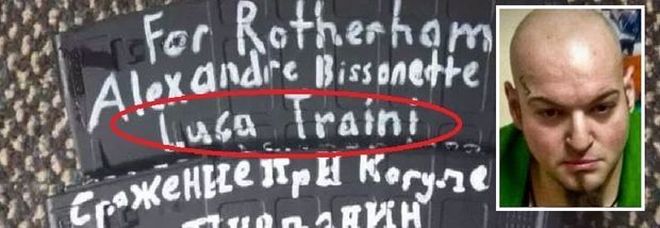 For Rotherham
Alexandre Bissonette
Luca Traini
Сражение при Кагуле